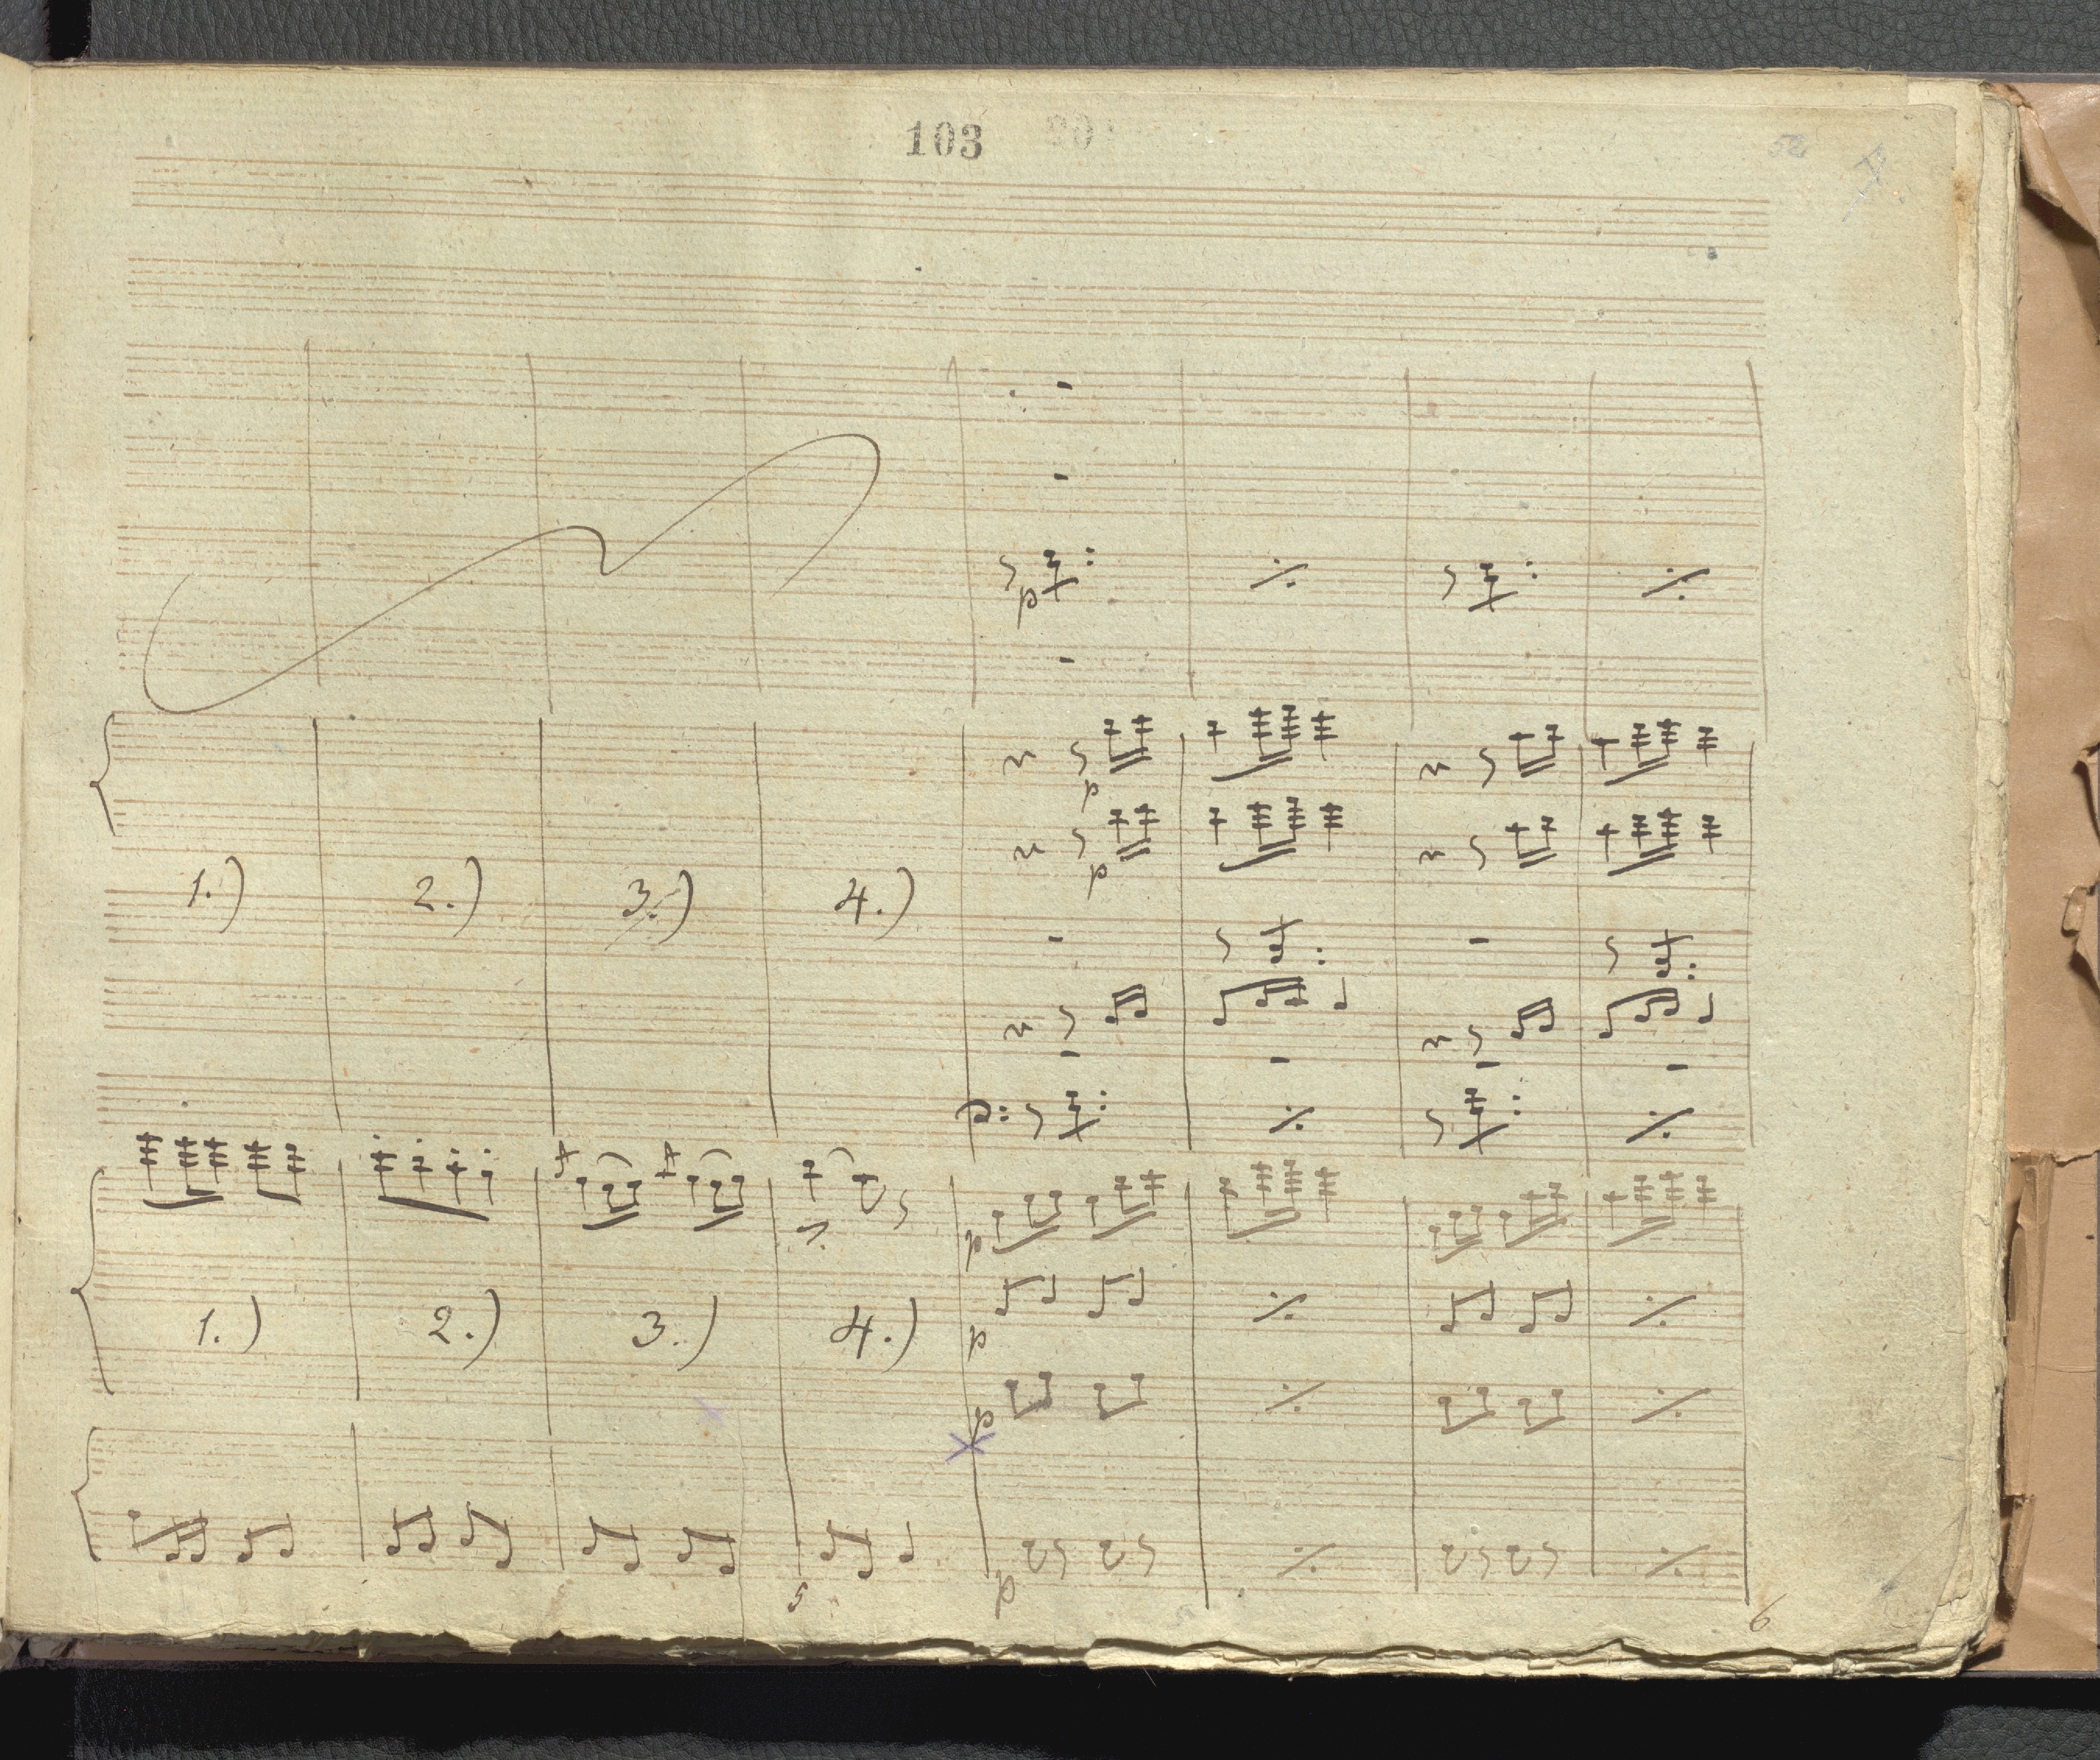 103
52
p
p
p
1.) 2.) 3.) 4.)
p:
p
p
1.) 2.) 3.) 4.)
p
p
5
6